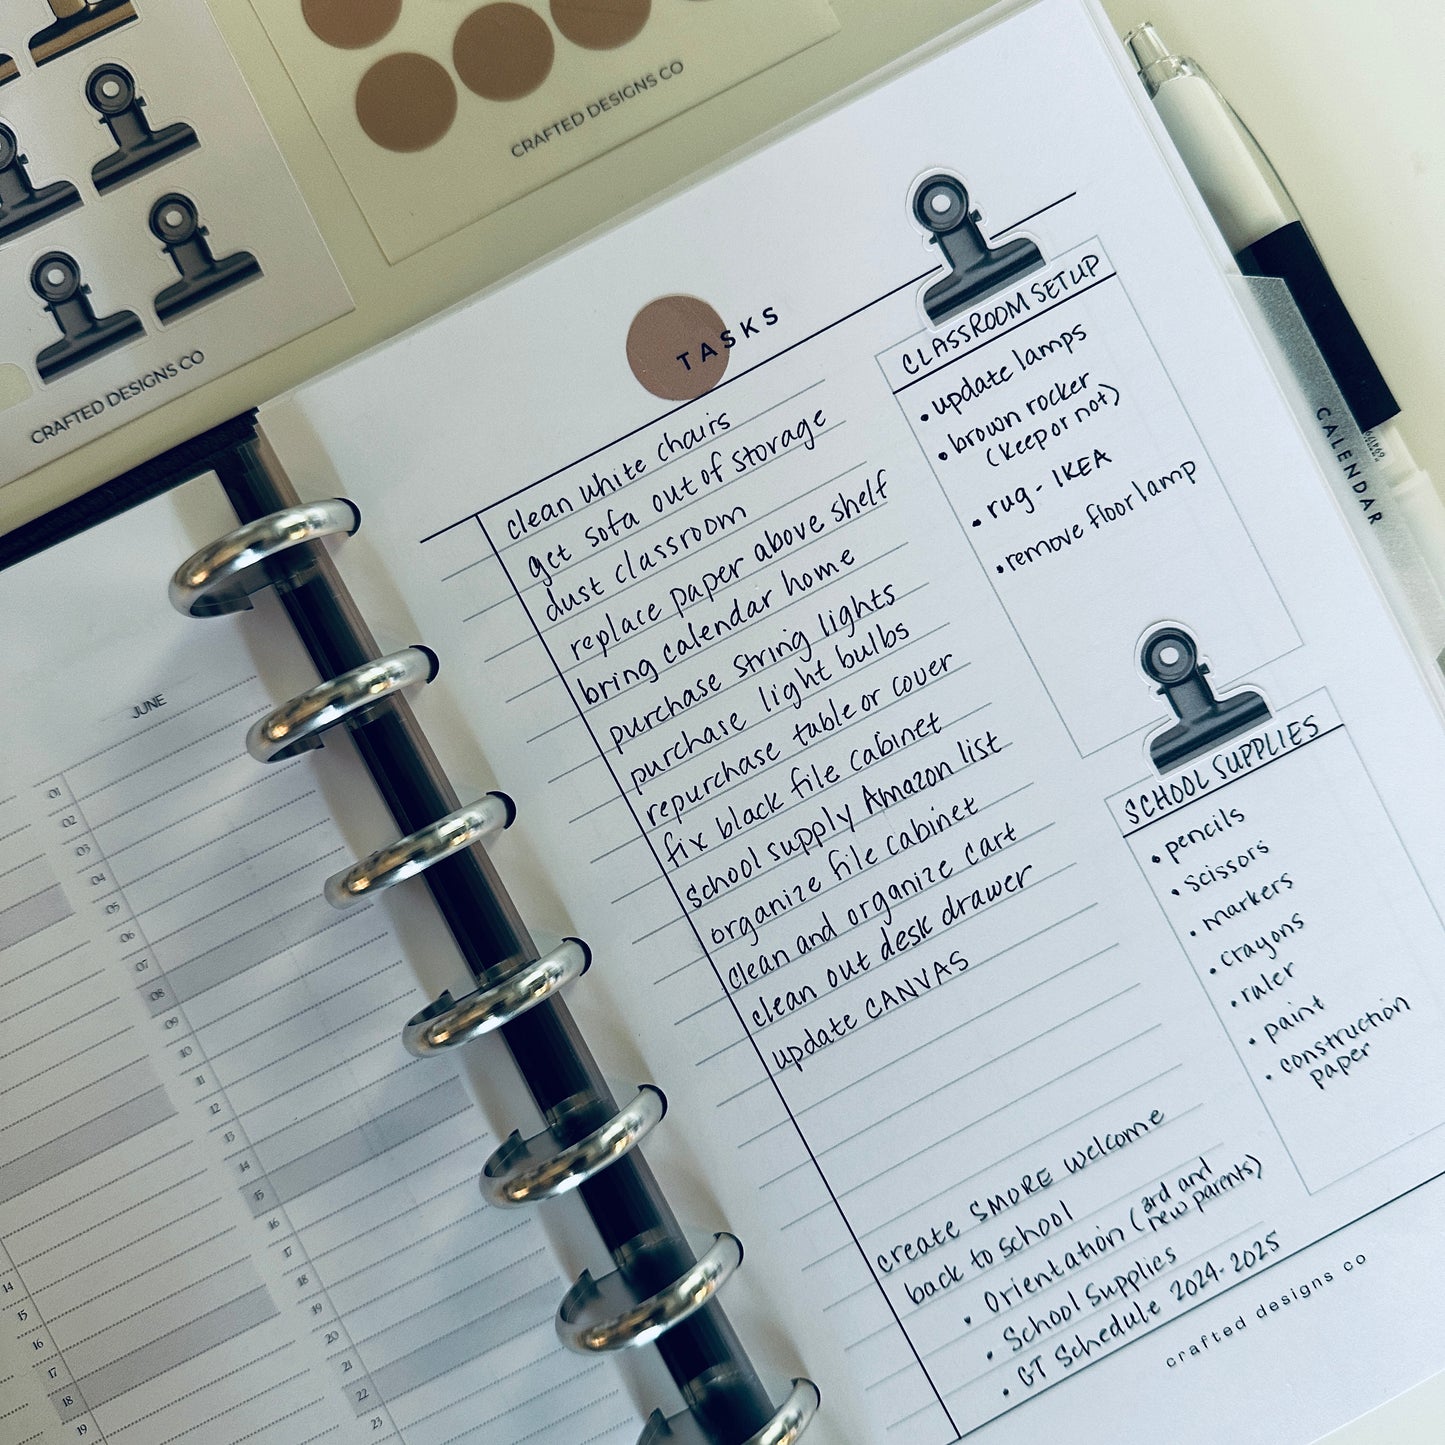 CRAFTED DESIGNS CO
CRAFTED DESIGNS CO
TASKS
clean white chairs
get sofa out of storage
dust classroom
replace paper above shelf
bring calendar home
purchase string lights
purchase light bulbs
repurchase table or cover
fix black file cabinet
school supply Amazon list
organize file cabinet
clean and organize cart
clean out desk drawer
update CANVAS
create SMORE welcome
back to school
• Orientation (3rd and
new parents)
• School Supplies
• GT Schedule 2024-2025
CLASSROOM SETUP
• update lamps
• brown rocker
(keep or not)
• rug - IKEA
• remove floor lamp
SCHOOL SUPPLIES
• pencils
• scissors
• markers
• crayons
• ruler
• paint
• construction
paper
crafted designs co
CALENDAR
JUNE
01
02
03
04
05
06
07
08
09
10
11
12
13
14
15
16
17
18
19
20
21
22
23
14
15
16
17
18
19